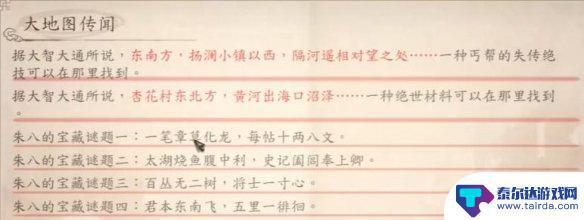 大地图传闻
据大智大通所说，东南方，扬澜小镇以西，隔河遥相对望之处……一种丐帮的失传绝
技可以在那里找到。
据大智大通所说，杏花村东北方，黄河出海口沼泽……一种绝世材料可以在那里找到
。
朱八的宝藏谜题一：一笔章草化龙，每帖十两八文。
朱八的宝藏谜题二：太湖烧鱼腹中利，史记阖闾奉上卿。
朱八的宝藏谜题三：百丛无二树，将士一寸心。
朱八的宝藏谜题四：君本东南飞，五里一徘徊。
泰尔达游戏网
www.tairda.com